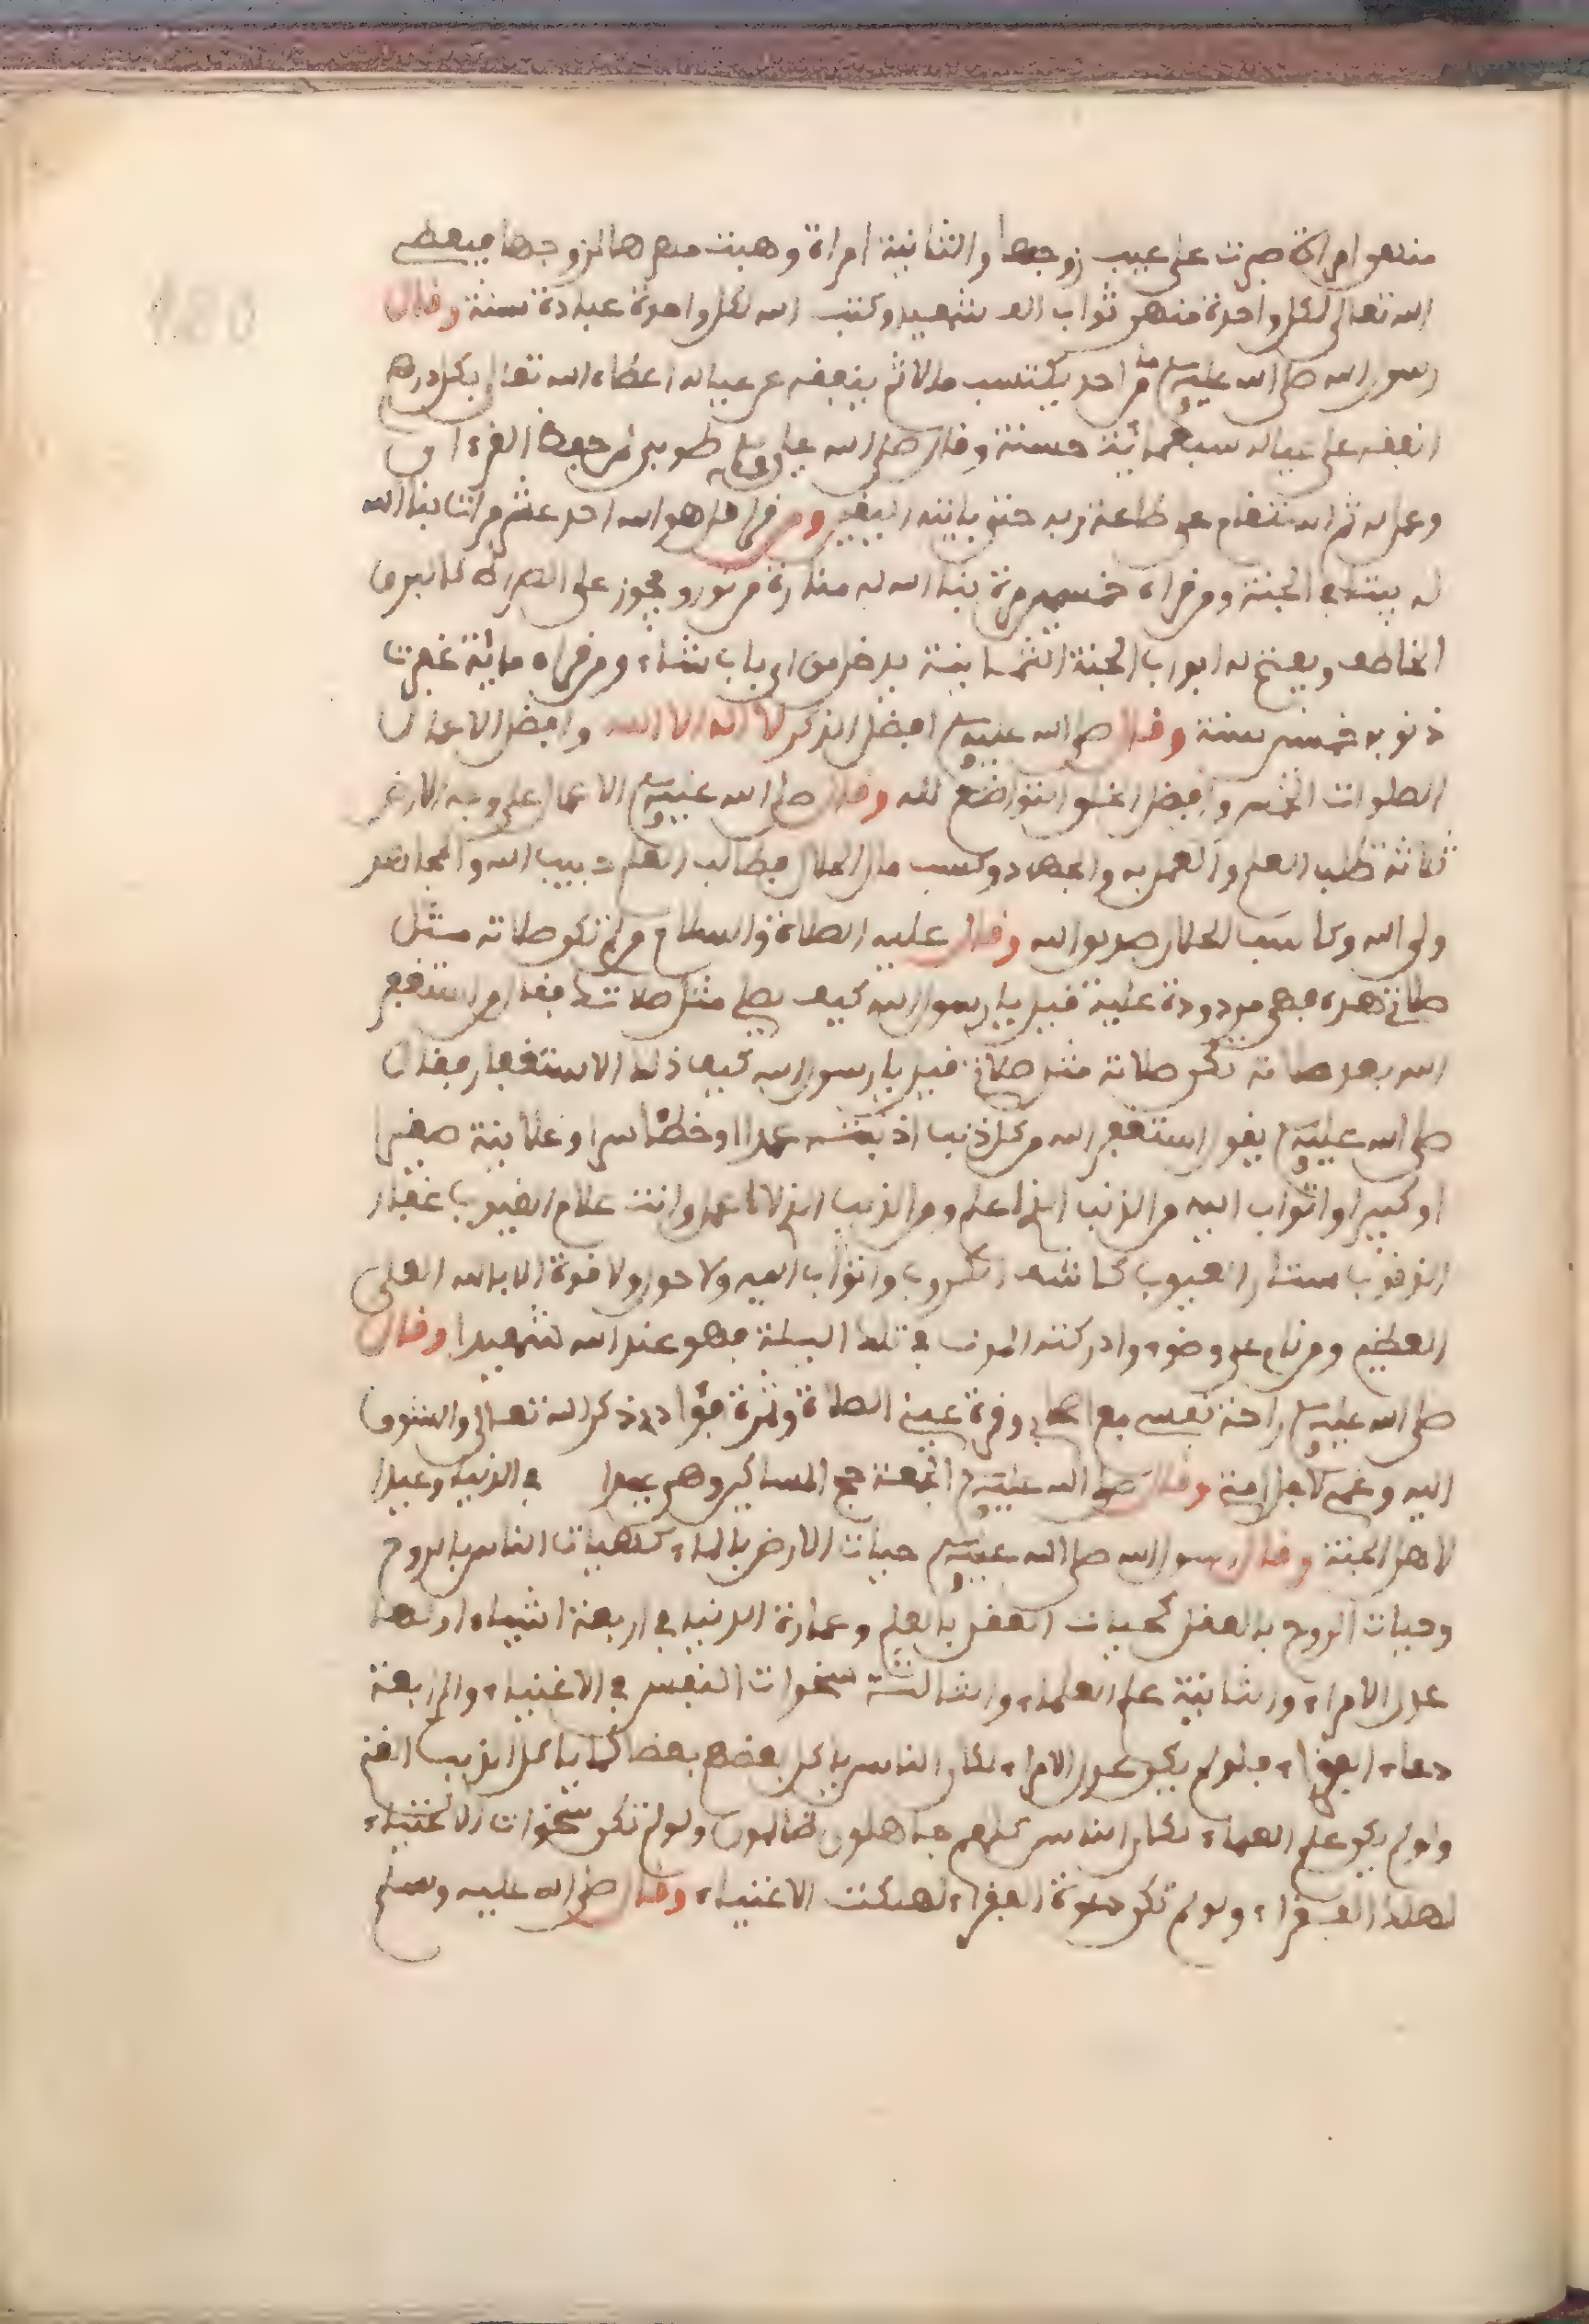 منهن امراة صبرت على عيب زوجها والثانية امراة وهبت مهرها لزوجها فيعطى
الله تعالى لكل واحدة منهن ثواب الف شهيد وكتب الله لكل واحدة عبادة سنة وقال
رسول الله صلى الله عليه وسلم ما من احد يكتسب مالا ثم ينفقه على عياله اعطاه الله تعالى بكل درهم
انفقه على عياله سبعمائة حسنة وقال صلى الله عليه وسلم طوبى لمن حفظ القرءان
وعمل به ثم استقام على طاعة ربه حتى ياتيه اليقين ومن قرا قل هو الله احد عشر مرات بنا الله
له بيتا في الجنة ومن قراه خمسين مرة بنا الله له منارة من نور ويجوز على الصراط كالبرق
الخاطف ويفتح له ابواب الجنة الثمانية يدخل من اي باب شاء ومن قراه مائة غفرت
ذنوبه خمسين سنة وقال صلى الله عليه وسلم افضل الذكر لا اله الا الله وافضل الاعمال
الصلوات الخمس وافضل الخلق التواضع لله وقال صلى الله عليه وسلم الاعمال على وجه الارض
ثلاثة طلب العلم والعمل به والجهاد وكسب مال الحلال فطالب العلم حبيب الله والمجاهد
ولى الله وكاسب الحلال صديق الله وقال عليه الصلاة والسلام من لم تكن صلاته مثل
صلاتي هذه فهى مردودة عليه قيل يا رسول الله كيف يصلى مثل صلاتك فقال من استغفر
الله بعد صلاته تكن صلاته مثل صلاتي قيل يا رسول الله كيف ذلك الاستغفار فقال
صلى الله عليه وسلم يقول استغفر الله من كل ذنب اذنبته عمدا او خطئا سرا وعلانية صغيرا
او كبيرا واتوب اليه من الذنب الذي اعلم ومن الذنب الذي لا اعلم وانت علام الغيوب غفار
الذنوب ستار العيوب كاشف الكروب واتوب اليه ولا حول ولا قوة الا بالله العلي
العظيم ومن نام على وضوء وادركته الموت في تلك اليلة فهو عند الله شهيدا وقال
صلى الله عليه وسلم راحة نفسي مع اصحابي وقرة عيني الصلاة وثمرة فؤادي ذكر الله تعالى والشوق
اليه وغمي لاجل امتي وقال صلى الله عليه وسلم الجمعة حج المساكين وهي عيدا في الدنيا وعيدا
لاهل الجنة وقال رسول الله صلى الله عليه وسلم حيات الارض بالماء كحيات الناس بالروح
وحيات الروح بالعقل كحيات العقل بالعلم وعمارة الدنيا في اربعة اشياء اولها
عدل الامراء والثانية علم العلماء والثالثة سخوات النفس في الاغنياء والرابعة
دعاء الفقراء فلولم يكن عدل الامراء لكان الناس ياكل بعضهم بعضا كما ياكل الذيب الغنم
ولولم يكن علم العلماء لكان الناس كلهم جاهلون ظالمون ولولم تكن سخوات الاغنياء
لهلك الفقراء ولولم تكن دعوة الفقراء لهلكت الاغنياء وقال صلى الله عليه وسلم
180